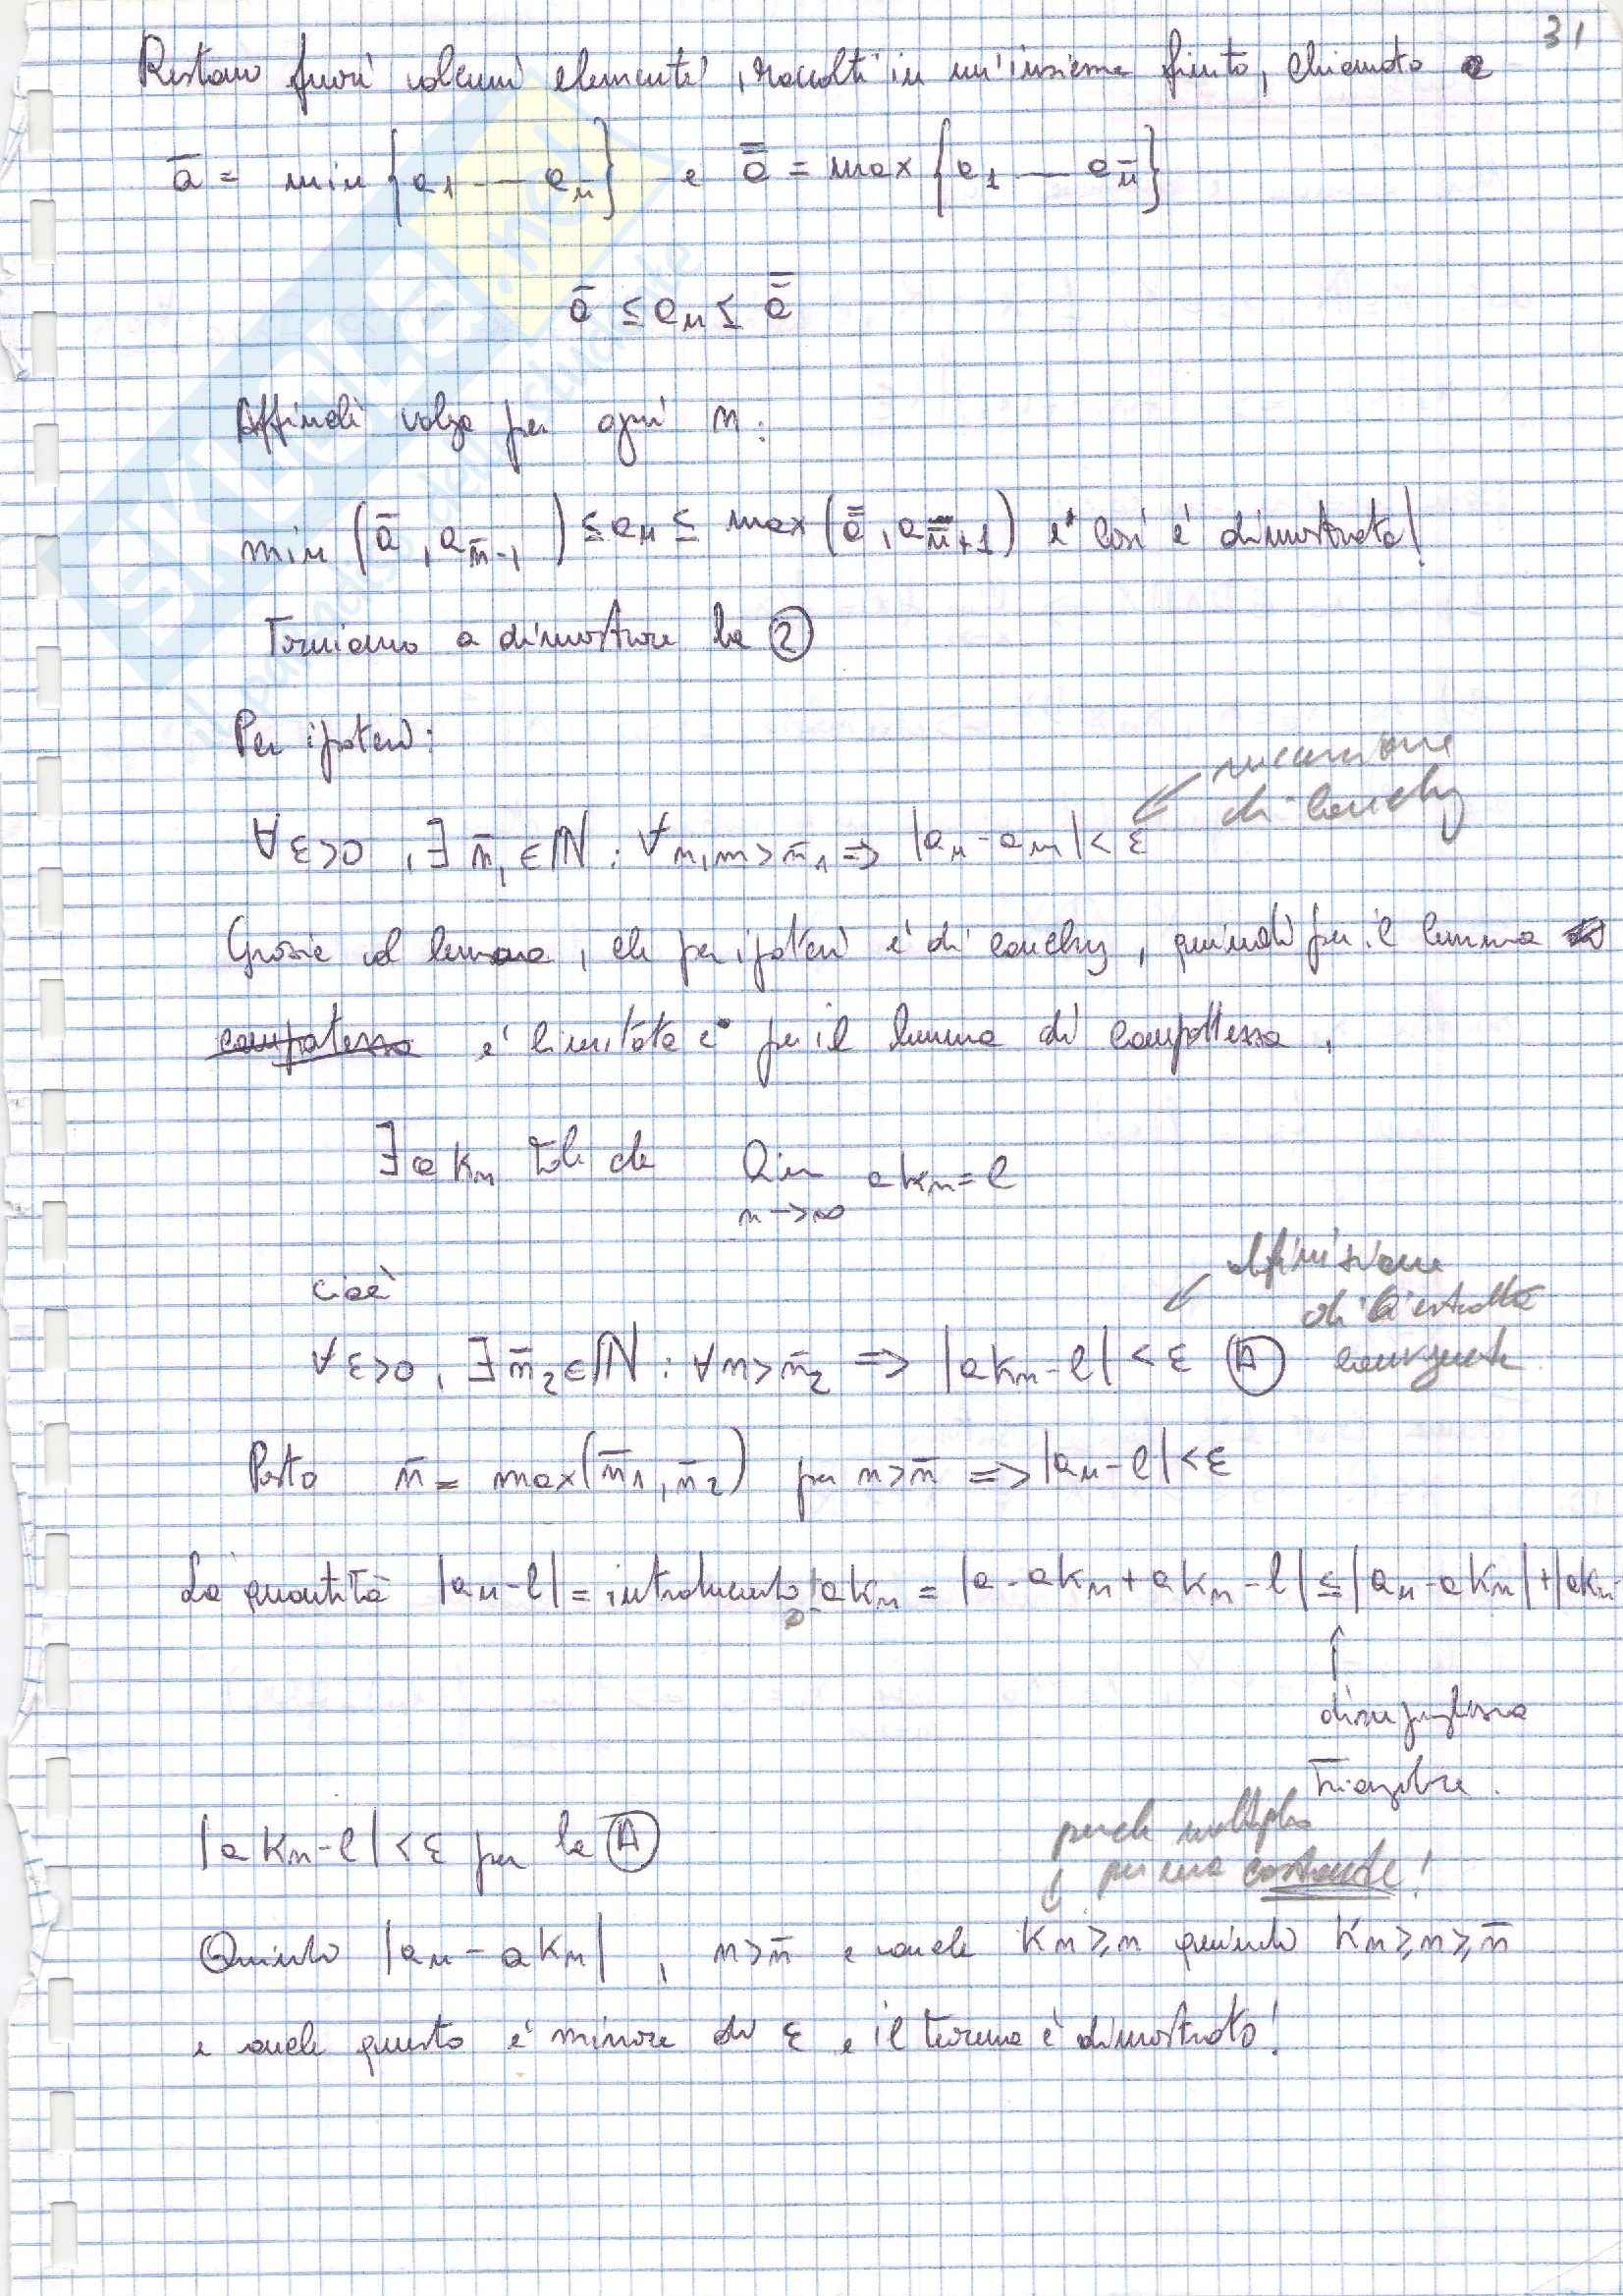 31
Restano fuori alcuni elementi, raccolti in un'insieme finito, chiamato a
a̅ = min {a1 — an̅} e a̿ = max {a1 — an̅}
a̅ ≤ an ≤ a̿
Affinché valga per ogni n:
min (a̅, an̅-1) ≤ an ≤ max (a̿, an̿+1) e così è dimostrata!
Torniamo a dimostrare la ②
Per ipotesi:
successione
di Cauchy
∀ε>0, ∃ n̅1 ∈ ℕ : ∀n,m > n̅1 => |an - am| < ε
Grazie al lemma, che per ipotesi è di cauchy, quindi per il lemma
compatezza è limitata e per il lemma di compattezza,
∃ akn tale che lim akn = l
n->∞
cioè
definizione
di estratta
convergente
∀ε>0, ∃ n̅2 ∈ ℕ : ∀n > n̅2 => |akn - l| < ε Ⓐ
Posto n̅ = max (n̅1, n̅2) per n > n̅ => |an - l| < ε
La quantità |an - l| = introducendo akn = |a - akn + akn - l| ≤ |an - akn| + |akn-
↑
disuguaglianza
Triangolare.
|akn - l| < ε per la Ⓐ
perché moltiplico
per una costante!
Quindi |an - akn|, n > n̅ e anche kn ≥ n quindi kn ≥ n ≥ n̅
e anche questo è minore di ε e il teorema è dimostrato!
SKUOLA.net